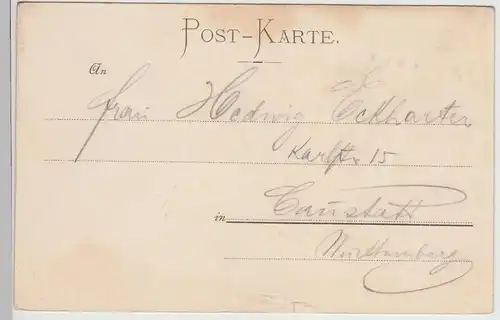 POST-KARTE.
An
Frau Hedwig Eckharter
Karlstr 15
in Cannstatt
Württemberg